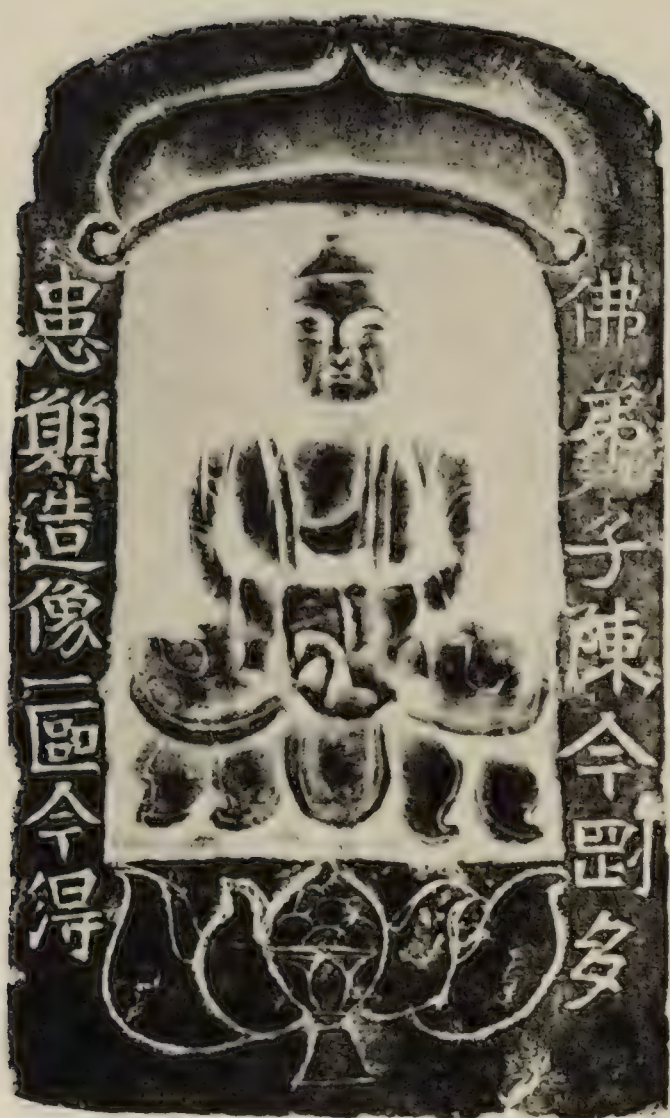 佛弟子陳今㓻多
患願造像一區今得